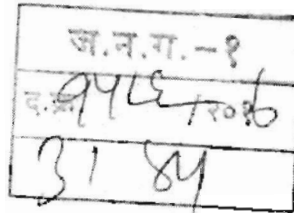 ज.न.ग. -१
द.क्र. १५८६/२०१७
३१ ४५